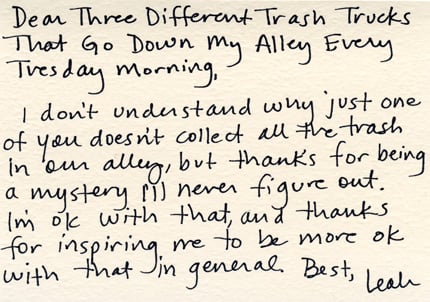 Dear Three Different Trash Trucks
That Go Down My Alley Every
Tuesday Morning,
I don't understand why just one
of you doesn't collect all the trash
in our alley, but thanks for being
a mystery I'll never figure out.
I'm ok with that, and thanks
for inspiring me to be more ok
with that in general. Best, Leah